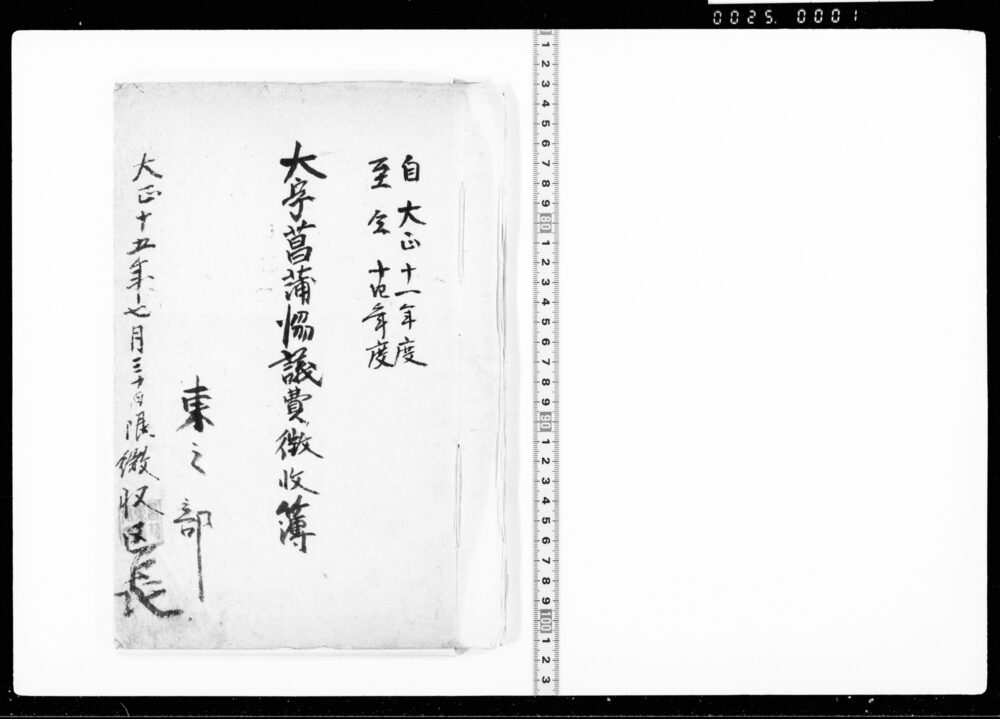 0025. 0001
自大正十一年度
至仝十四年度
大字菖蒲協議費徴収簿
東之部
大正十五年七月三十日限徴収区長
1 2 3 4 5 6 7 8 9 80 1 2 3 4 5 6 7 8 9 90 1 2 3 4 5 6 7 8 9 100 1 2 3